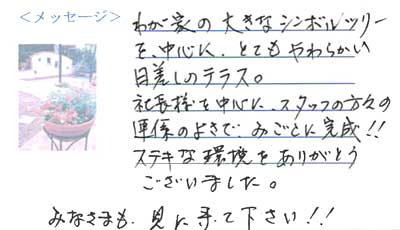 ＜メッセージ＞
わが家の大きなシンボルツリー
を、中心に、とてもやわらかい
日差しのテラス。
社長様を中心に、スタッフの方々の
連係のよさで みごとに完成!!
ステキな環境をありがとう
ございました。
みなさまも、見に来て下さい!!